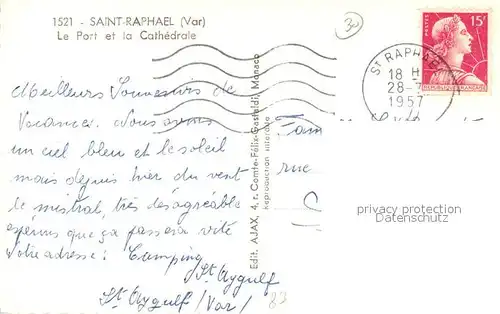 1521 - SAINT-RAPHAEL (Var)
Le Port et la Cathédrale
30
POSTES
15F
RÉPUBLIQUE FRANÇAISE
ST RAPHA
18 H
28-7
1957
Meilleurs Souvenirs de
Vacances. Nous avons
un ciel bleu et le soleil
mais depuis hier du vent
le mistral, très désagréable
espérons que ça passera vite
Votre adresse: Camping
St Aygulf
St Aygulf (Var)
Edit. AJAX, 4, r. Comte-Félix-Gastaldi, Monaco
Reproduction interdite
Fam
rue
privacy protection
Datenschutz
83